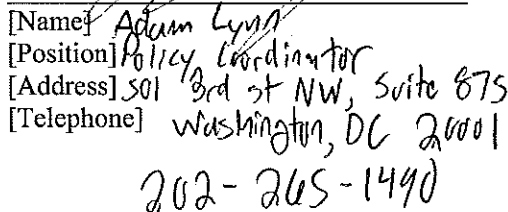 [Name] Adam Lynn
[Position] Policy Coordinator
[Address] 501 3rd st NW, Suite 875
[Telephone] Washington, DC 20001
202-265-1490